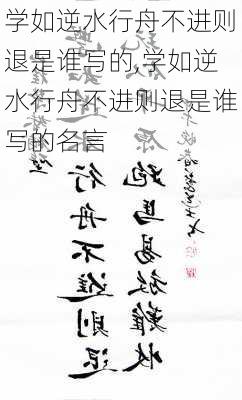 学如逆水行舟不进则
退是谁写的,学如逆
水行舟不进则退是谁
写的名言
行舟不進則退
跑馬易放難收